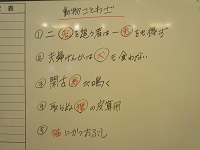 表
動物ことわざ
① 二兎を追う者は一兎をも得ず
② 夫婦げんかは犬も食わない
③ 閑古鳥が鳴く
④ 取らぬ狸の皮算用
⑤ 猫にかつおぶし